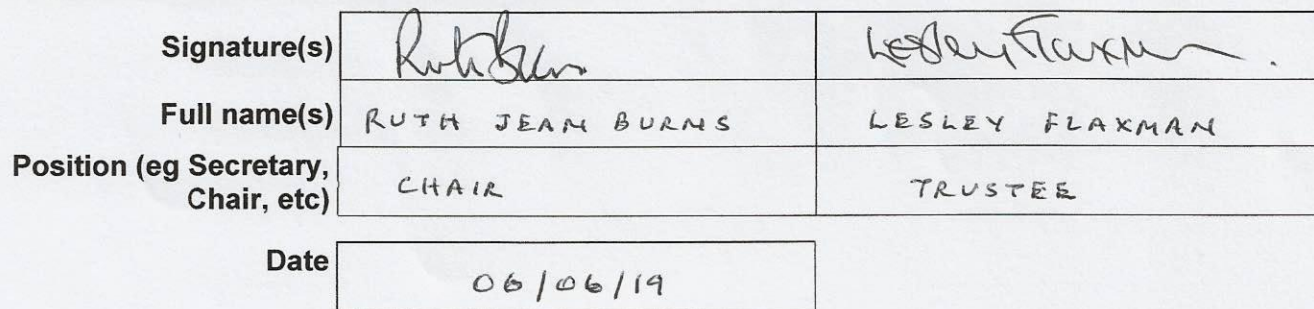 Signature(s) Ruth Burns Lesley Flaxman
Full name(s) RUTH JEAN BURNS LESLEY FLAXMAN
Position (eg Secretary,
Chair, etc) CHAIR TRUSTEE
Date 06/06/19